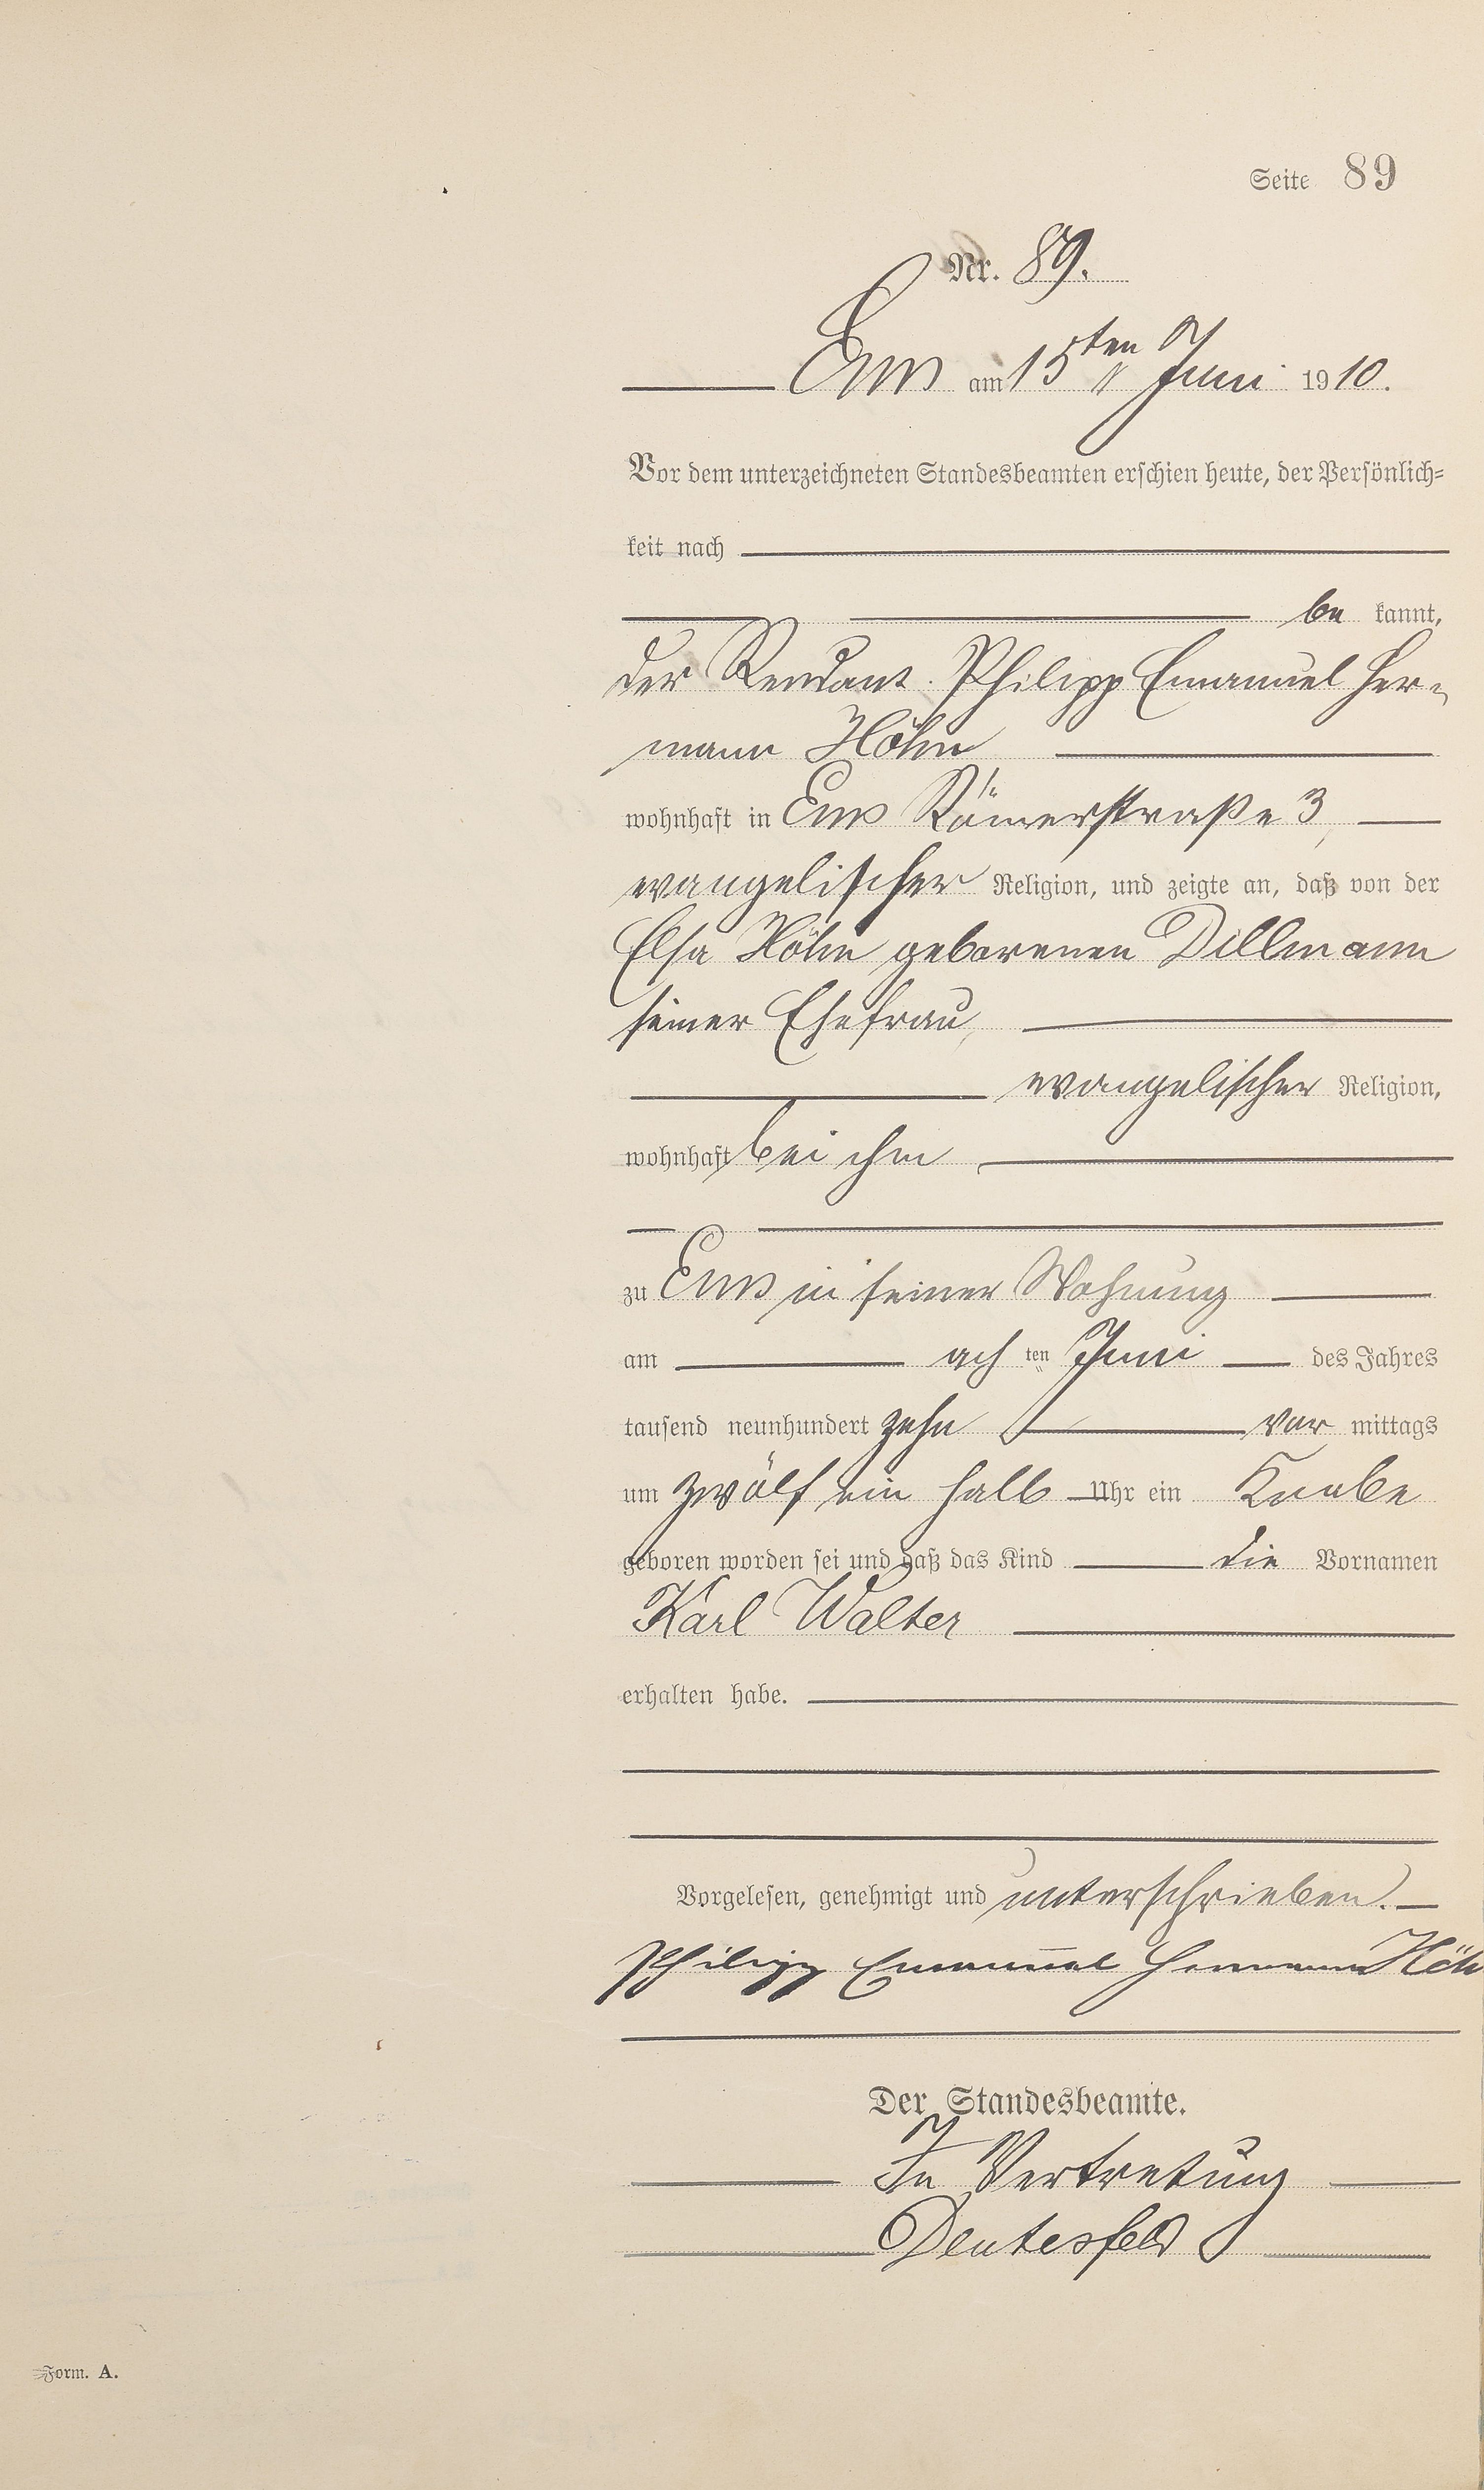 Seite 89
Nr. 89.
Ems am 15ten Juni 1910.
Vor dem unterzeichneten Standesbeamten erschien heute, der Persönlich-
keit nach
be kannt,
der Rendant Philipp Emanuel Her-
mann Höhn
wohnhaft in Ems Römerstraße 3,
evangelischer Religion, und zeigte an, daß von der
Elsa Höhn geborenen Dillmann
seiner Ehefrau,
evangelischer Religion,
wohnhaft bei ihm
zu Ems in seiner Wohnung
am ach ten Juni des Jahres
tausend neunhundert zehn vor mittags
um zwölf ein halb Uhr ein Knabe
geboren worden sei und daß das Kind die Vornamen
Karl Walter
erhalten habe.
Vorgelesen, genehmigt und unterschrieben.
Philipp Emanuel Hermann Höhn
Der Standesbeamte.
In Vertretung
Deutesfeld
Form. A.